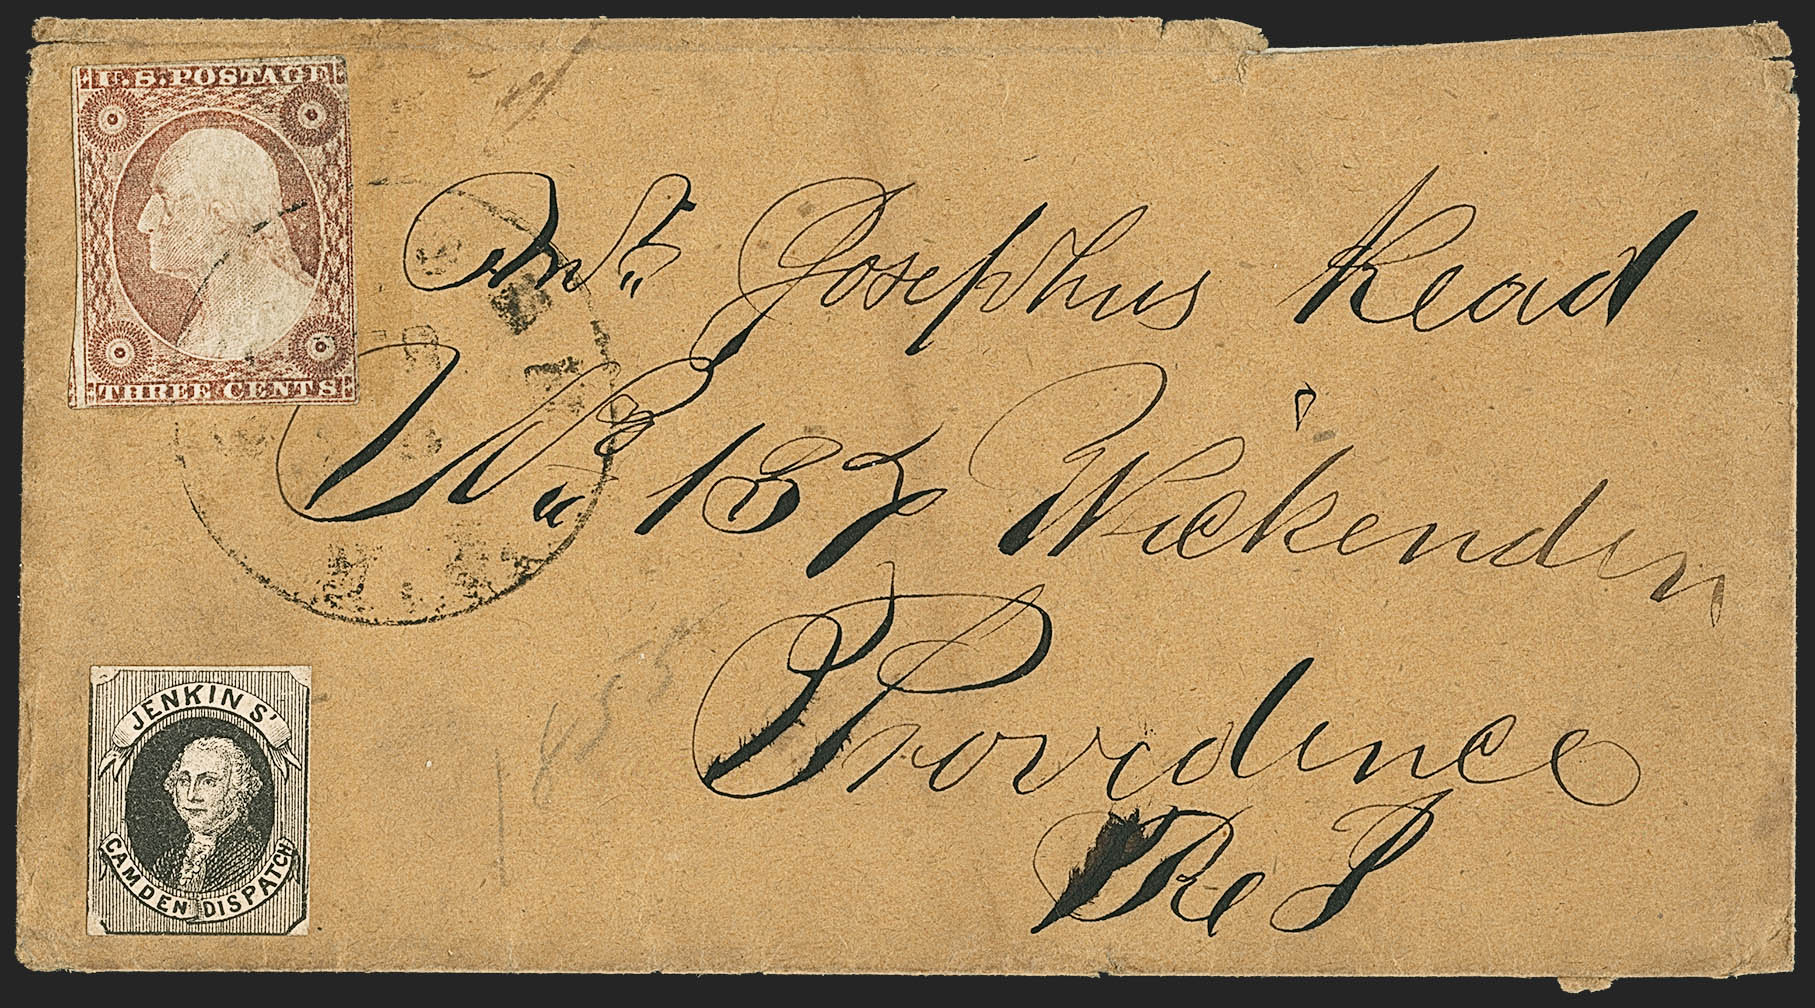 U.S. POSTAGE
THREE CENTS
Josephus Read
No 132 Wickenden
Providence
R I
1855
JENKINS'
CAMDEN DISPATCH